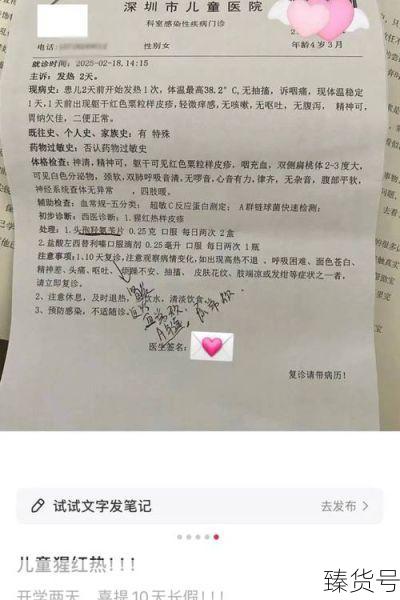 深圳市儿童医院
科室感染性疾病门诊
电话: 性别女 年龄4岁3月
就诊时间: 2025-02-18,14:15
主诉: 发热 2天。
现病史: 患儿2天前开始发热1次, 体温最高38.2°C,无抽搐, 诉咽痛, 现体温稳定
1天,1天前出现躯干红色粟粒样皮疹, 轻微痒感, 无咳嗽, 无呕吐, 无腹泻, 精神可,
胃纳欠佳, 二便正常。
既往史、个人史、家族史: 有 特殊
药物过敏史: 否认药物过敏史
体格检查: 神清, 精神可, 躯干可见红色粟粒样皮疹, 咽充血, 双侧扁桃体2-3度大,
可见白色分泌物, 颈软, 双肺呼吸音清, 无啰音, 心音有力, 律齐, 无杂音, 腹部平软,
神经系统查体无异常 , 四肢暖。
辅助检查: 血常规-五分类; 超敏C反应蛋白测定; A群链球菌快速检测;
初步诊断: 西医诊断: 1.猩红热样皮疹
处理: 1.头孢羟氨苄片 0.25克 口服 每日两次 2盒
2.盐酸左西替利嗪口服滴剂 0.25毫升 口服 每日两次 1瓶
注意事项:1、10天复诊,注意观察病情变化,如出现高热不退、呼吸困难、面色苍白、
精神差、头痛、呕吐、烦躁不安、抽搐、皮肤花纹、肢端凉或发绀等症状之一者,
请立即复诊。
2、注意休息, 及时退热, 饮水, 清淡饮食
3、预防感染, 不适随诊
医生签名:
复诊请带病历!
试试文字发笔记 去发布 >
儿童猩红热!!!
开学两天, 喜提10天长假!!!
臻货号